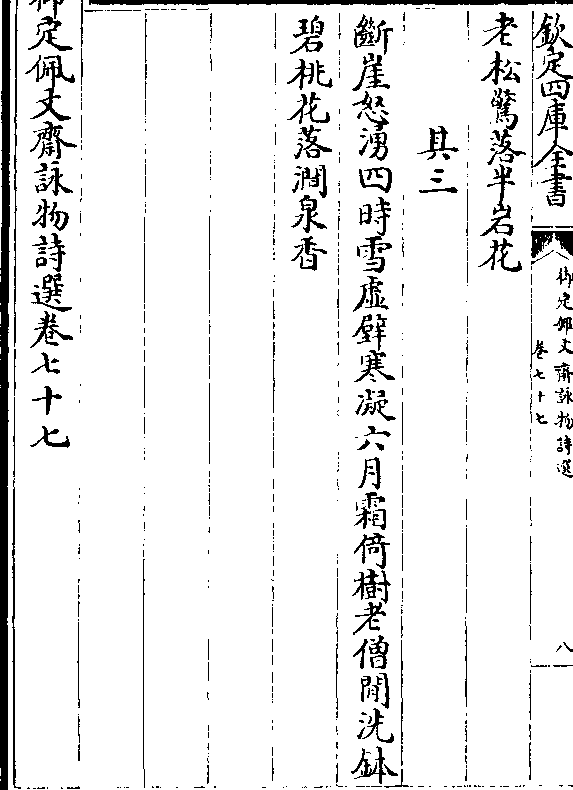 欽定四庫全書
御定佩文齋詠物詩選
卷七十七
八
老松驚落半岩花
其三
斷崖怒湧四時雪虛壁寒凝六月霜倚樹老僧閒洗鉢
碧桃花落澗泉香
御定佩文齋詠物詩選卷七十七